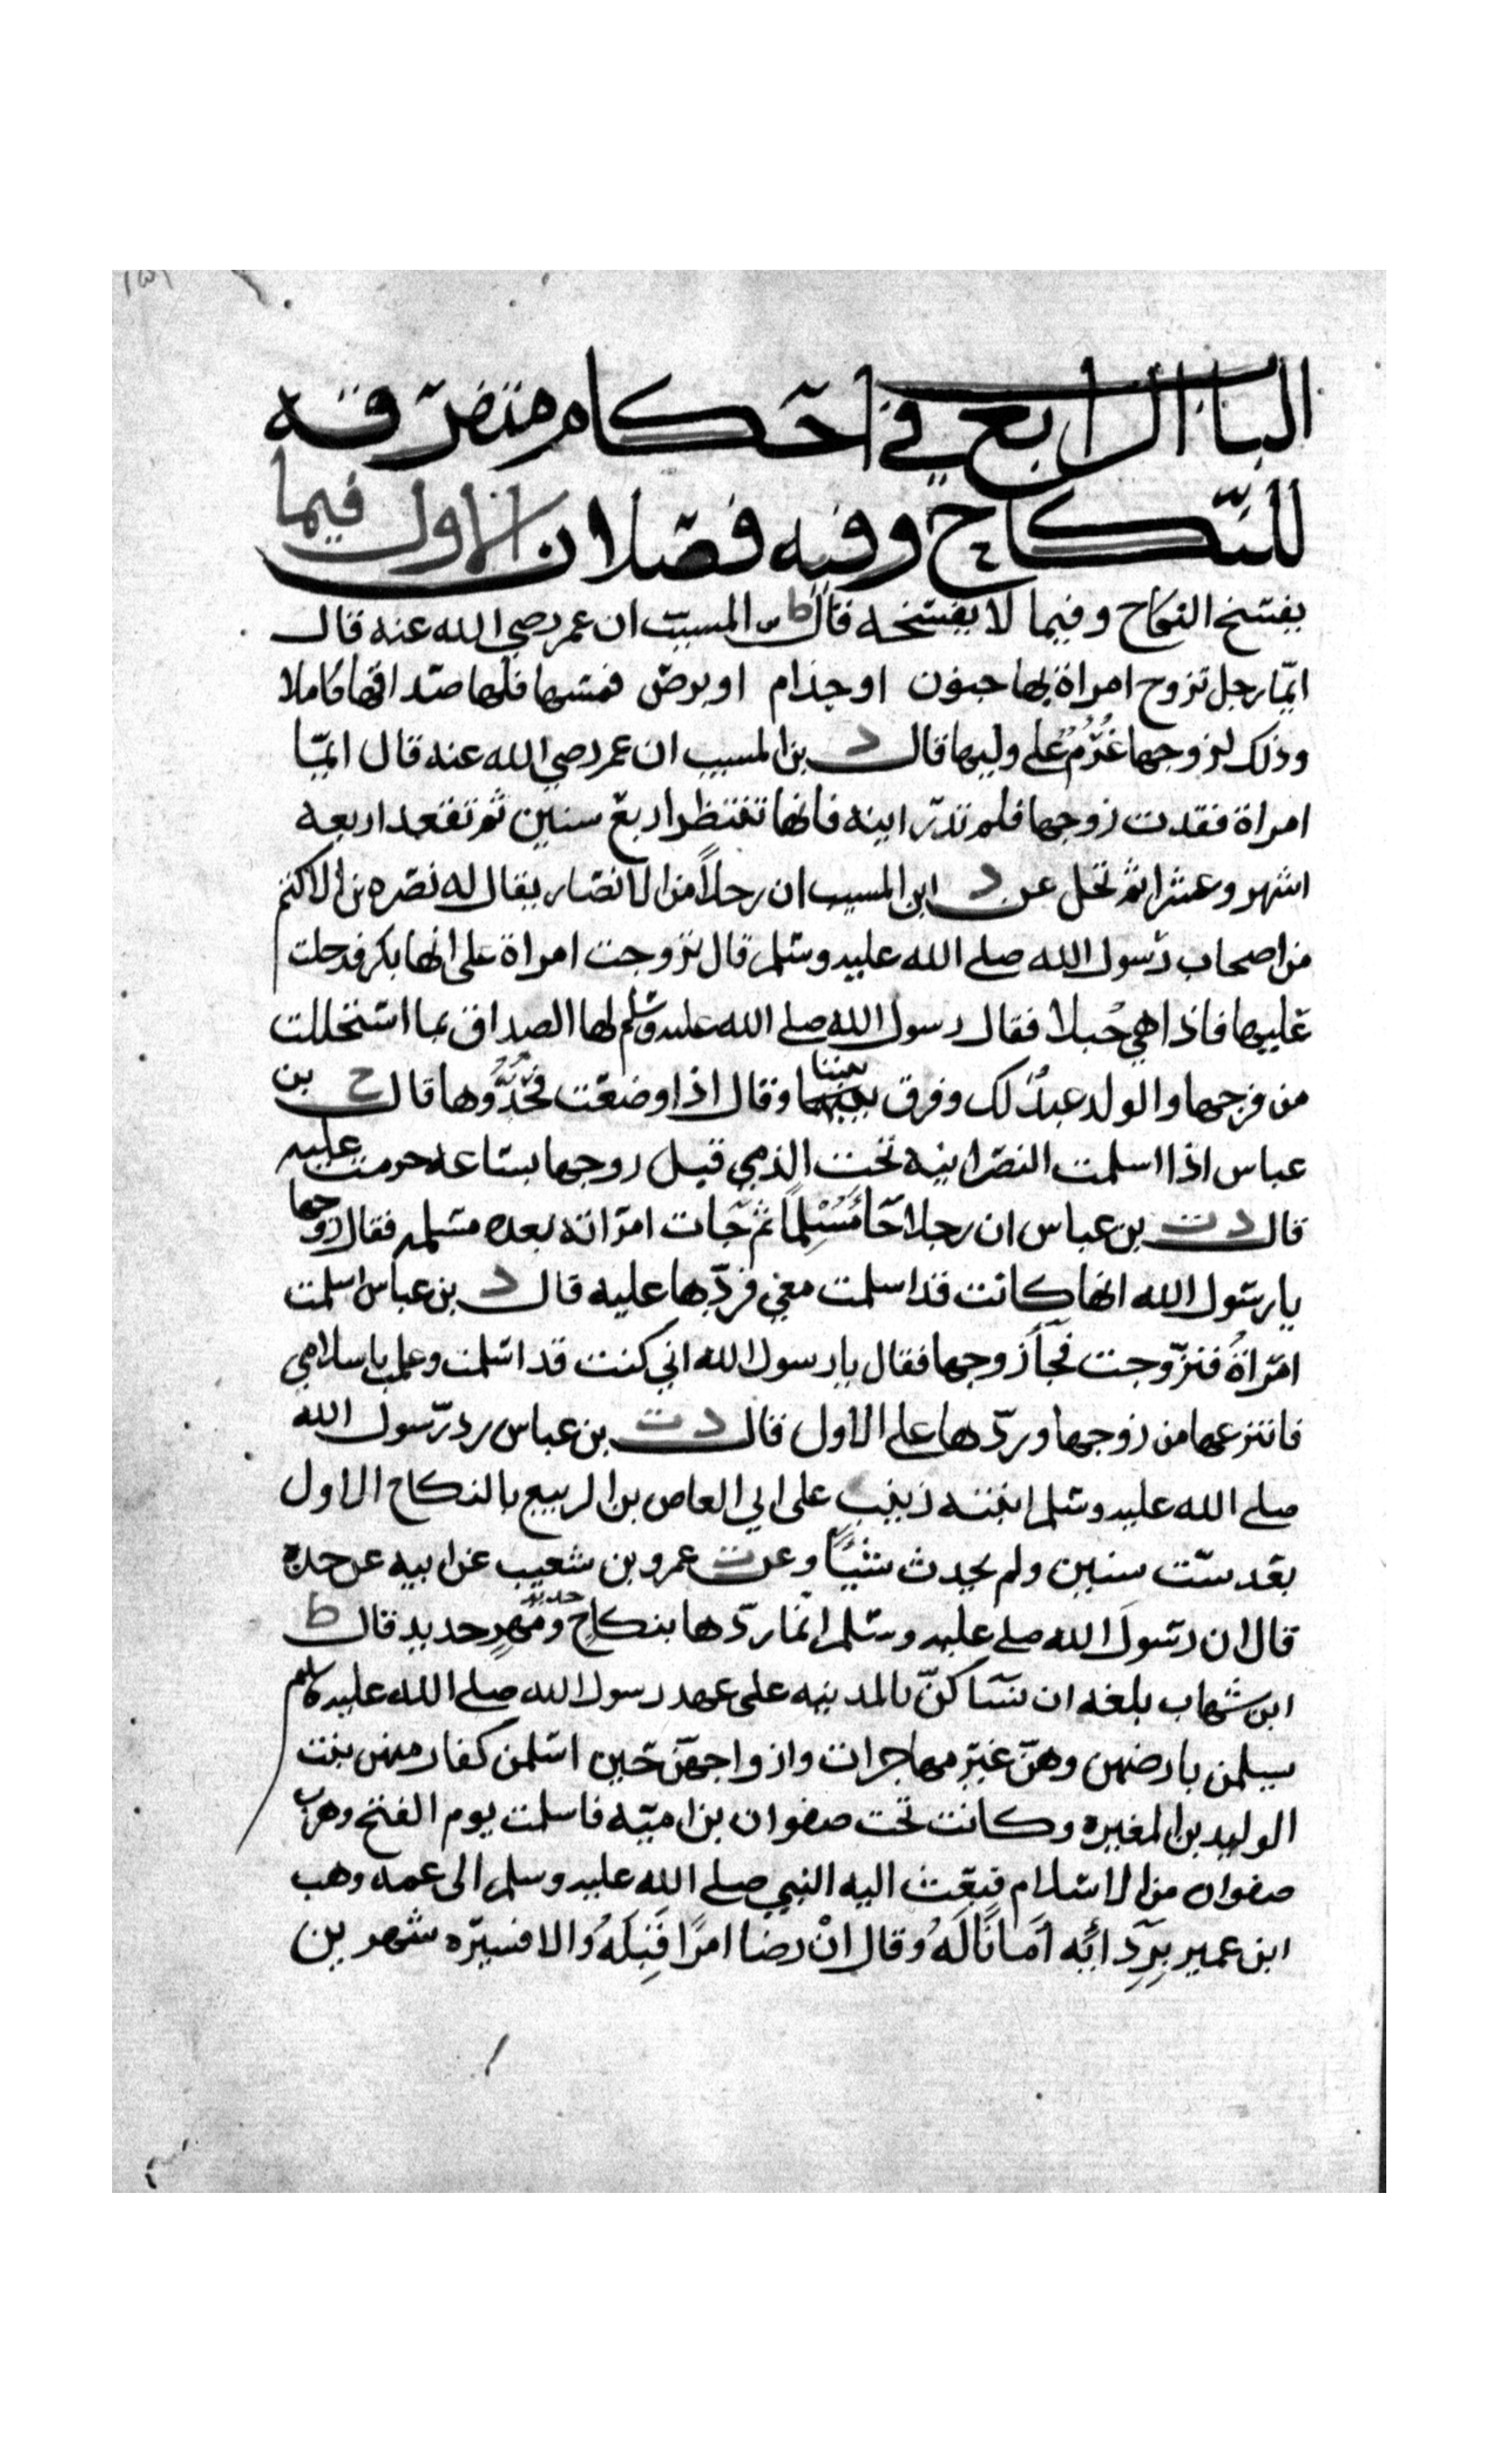 ١٥١
البا الرابع في احكام متفرقه
للنكاح وفيه فصلان الاول فيما
يفسخ النكاح وفيما لا يفسخه قال ط س المسيب ان عمر رضي الله عنه قال
ايّما رجل تزوج امراة بها جنون او جذام او برص فمسها فلها صداقها كاملا
وذلك لزوجها غُرْمٌ على وليها قال د بن المسيب ان عمر رضي الله عنه قال ايّما
امراة فقدت زوجها فلم تدر اينه فانها تنتظر اربع سنين ثم تقعد اربعه
اشهر وعشرا ثم تحل عن د ابن المسيب ان رجلاً من الانصار يقال له نصره بن الاكثم
من اصحاب رسول الله صلے الله عليه وسلم قال تزوجت امراة على انها بكر فدخلت
عليها فاذا هي حُبلا فقال رسول الله صلے الله عليه وسلم لها الصداق بما استحللت
من فرجها والولد عبدٌ لك وفرق بيننا وقال اذا وضعت فحُدُّوها قال خ بن
عباس اذا اسلمت النصرانيه تحت الذمي قبل زوجها بساعه حرمت عليه
قال د ت بن عباس ان رجلا جَا مُسْلِمًا ثم جَات امراته بعده مسلمه فقال زوجها
يا رسول الله انها كانت قد اسلمت معي فردّها عليه قال د بن عباس اسلمت
امراةُ فتزوّجت فجاَ زوجها فقال يا رسول الله اني كنت قد اسلمت وعلمت باسلامي
فانتزعها من زوجها وردّها على الاول قال د ت بن عباس رد رسول الله
صلے الله عليه وسلم ابنته زينب على ابي العاص بن الربيع بالنكاح الاول
بعد ستّ سنين ولم يحدث شيًا وعن ت عمرو بن شعيب عن ابيه عن جده
قال ان رسولَ الله صلے عليه وسلم انما ردّها بنكاحٍ جديد ومَهرٍ جديد قال ط
ابن شهاب بلغه ان نسَا كنّ بالمدينه على عهد رسول الله صلے الله عليه وسلم
يسلمن بارضهن وهنّ غير مهاجرات وازواجهنّ حين اسلمن كفار منهن بنت
الوليد بن المغيره وكانت تحت صفوان بن اميّه فاسلمت يوم الفتح وهرب
صفوان من الاسلام فبعث اليه النبي صلے الله عليه وسلم الى عمه وهب
ابن عمير بِرِدَائِه اَمَانًا لَهُ وقال اِنْ رضا امرًا قَبِلَهُ والا فسيّره شهرين